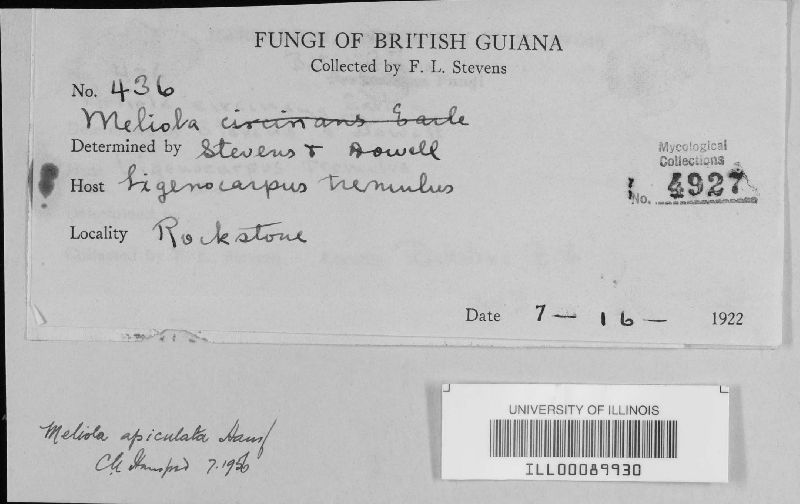 FUNGI OF BRITISH GUIANA
Collected by F. L. Stevens
No. 436
Meliola circinans Earle
Determined by Stevens & Dowell
Host Ligenocarpus tremulus
Locality Rockstone
Mycological
Collections
No. 4927
Date 7 — 16 — 1922
UNIVERSITY OF ILLINOIS
ILL00089930
Meliola apiculata Hansf
7.1956